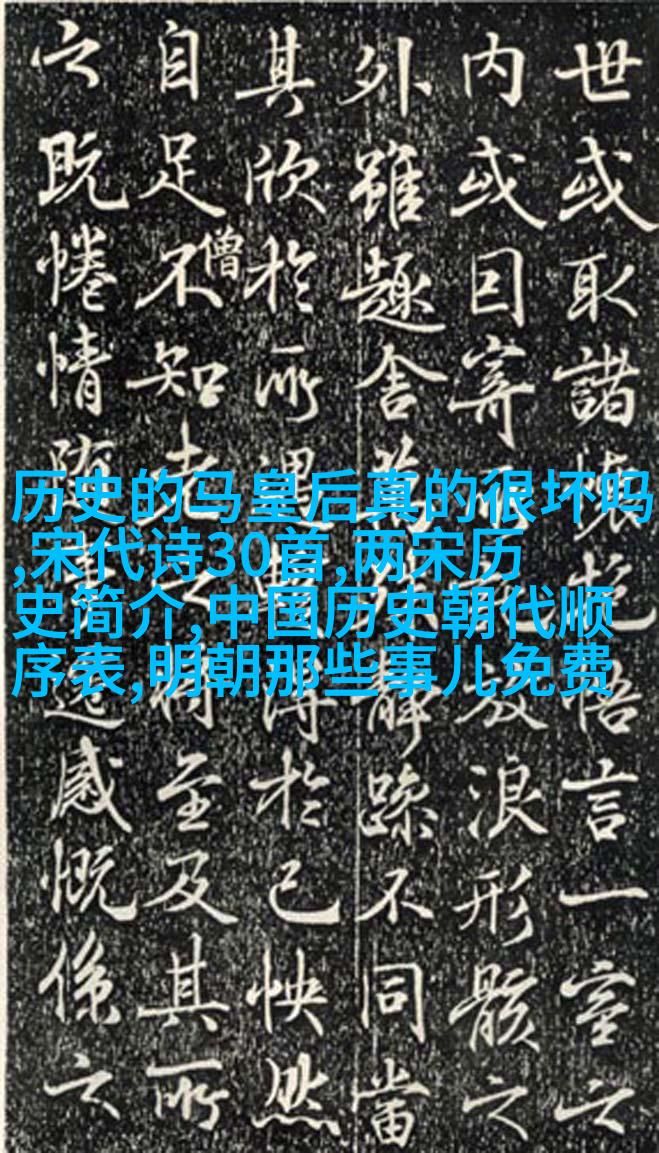 历史的马皇后真的很坏吗
,宋代诗30首,两宋历
史简介,中国历史朝代顺
序表,明朝那些事儿免费
世或取諸懷抱悟言一室之
内或因寄所託放浪形骸之
外雖趣舍萬殊靜躁不同當
其欣於所遇暫得於己怏然
僧
自足不知老之將至及其所
之既惓情隨事遷感慨係之